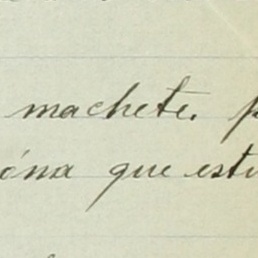 machete. p
óna que estu